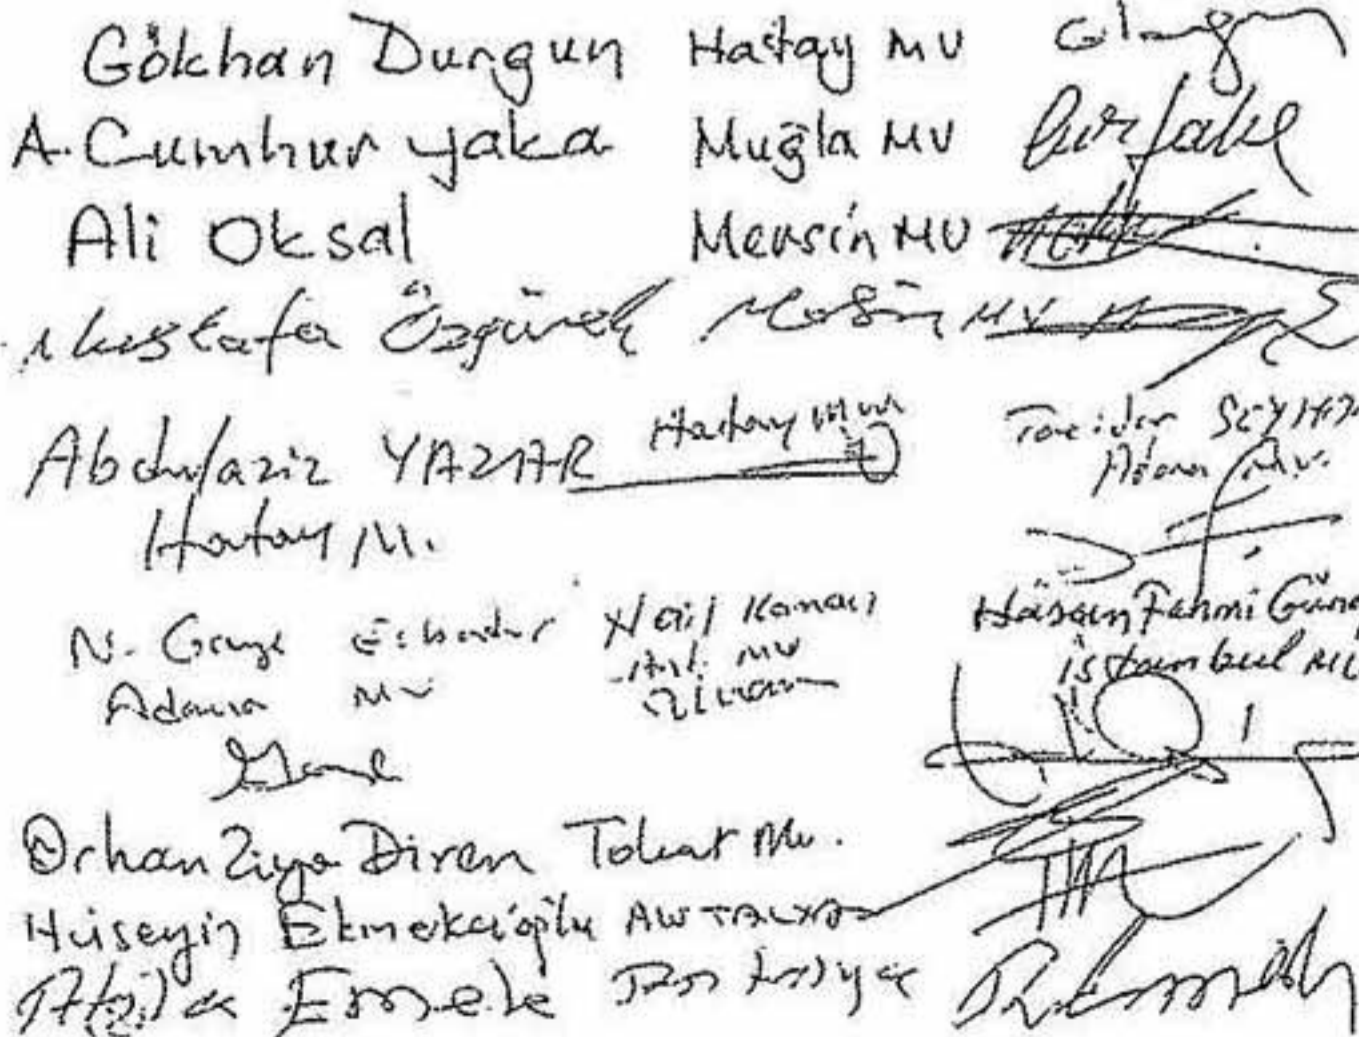 Gökhan Durgun Hatay MV
A. Cumhur Yaka Muğla MV
Ali Oksal Mersin MV
Mustafa Özyürek Mersin MV
Abdulaziz YAZAR Hatay MV
Hatay M.
Tacidar SEYHAN
Adana MV.
N. Gaye Erbatur
Adana MV
Nail Kamacı
Ant. MV
Hasan Fehmi Güneş
İstanbul MV
Orhan Ziya Diren Tokat Mv.
Hüseyin Ekmekcioğlu ANTALYA
Atila Emek Antalya